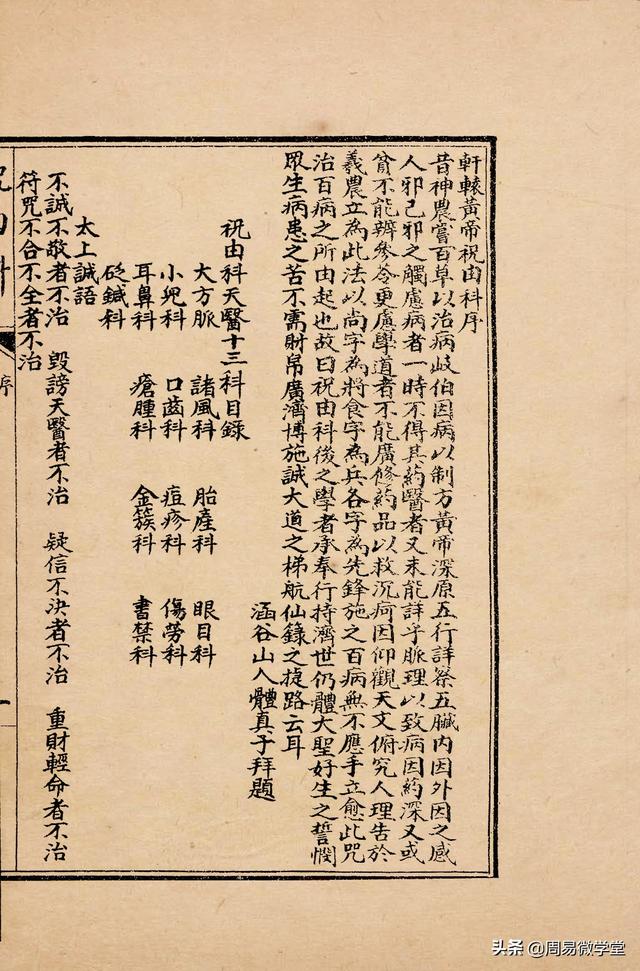 軒轅黃帝祝由科序
昔神農嘗百草以治病歧伯因病以制方黃帝深原五行詳察五臟內因外因之感
人邪已邪之觸慮病者一時不得其藥醫者又未能詳字脈理以致病因藥深又或
貧不能辦參苓更慮學道者不能廣修藥品以救沉疴因仰觀天文俯究人理告於
羲農立為此法以尚字為將食字為兵各字為先鋒施之百病無不應手立愈此咒
治百病之所由起也故曰祝由科後之學者承奉行持濟世仍體大聖好生之誓憫
眾生病患之苦不需財帛廣濟博施誠大道之梯航仙錄之捷路云耳
涵谷山人體真子拜題
祝由科天醫十三科目錄
大方脈 諸風科 胎產科 眼目科
小兒科 口齒科 痘疹科 傷勞科
耳鼻科 瘡腫科 金簇科 書禁科
砭鍼科
太上誠語
不誠不敬者不治 毀謗天醫者不治 疑信不決者不治 重財輕命者不治
符咒不合不全者不治
序
頭条 @周易微学堂